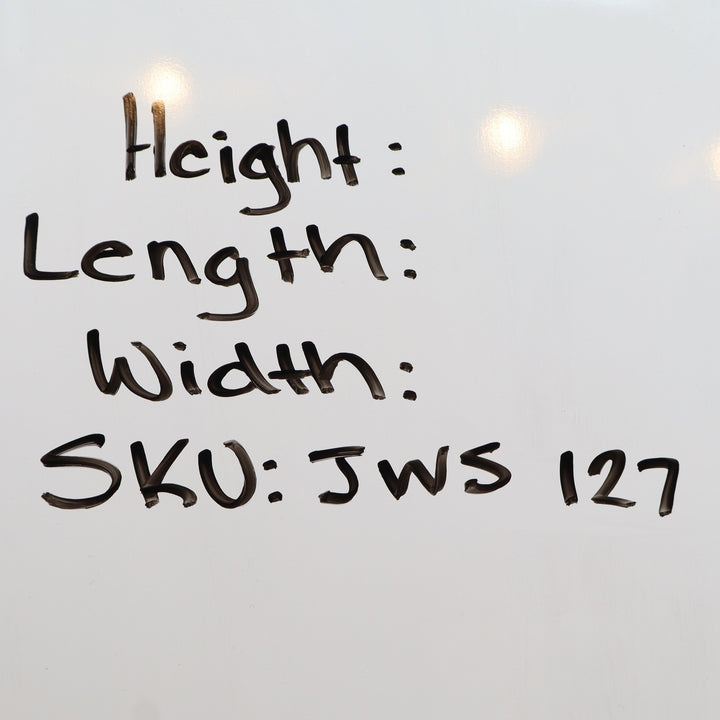 Height:
Length:
Width:
SKU: JWS 127